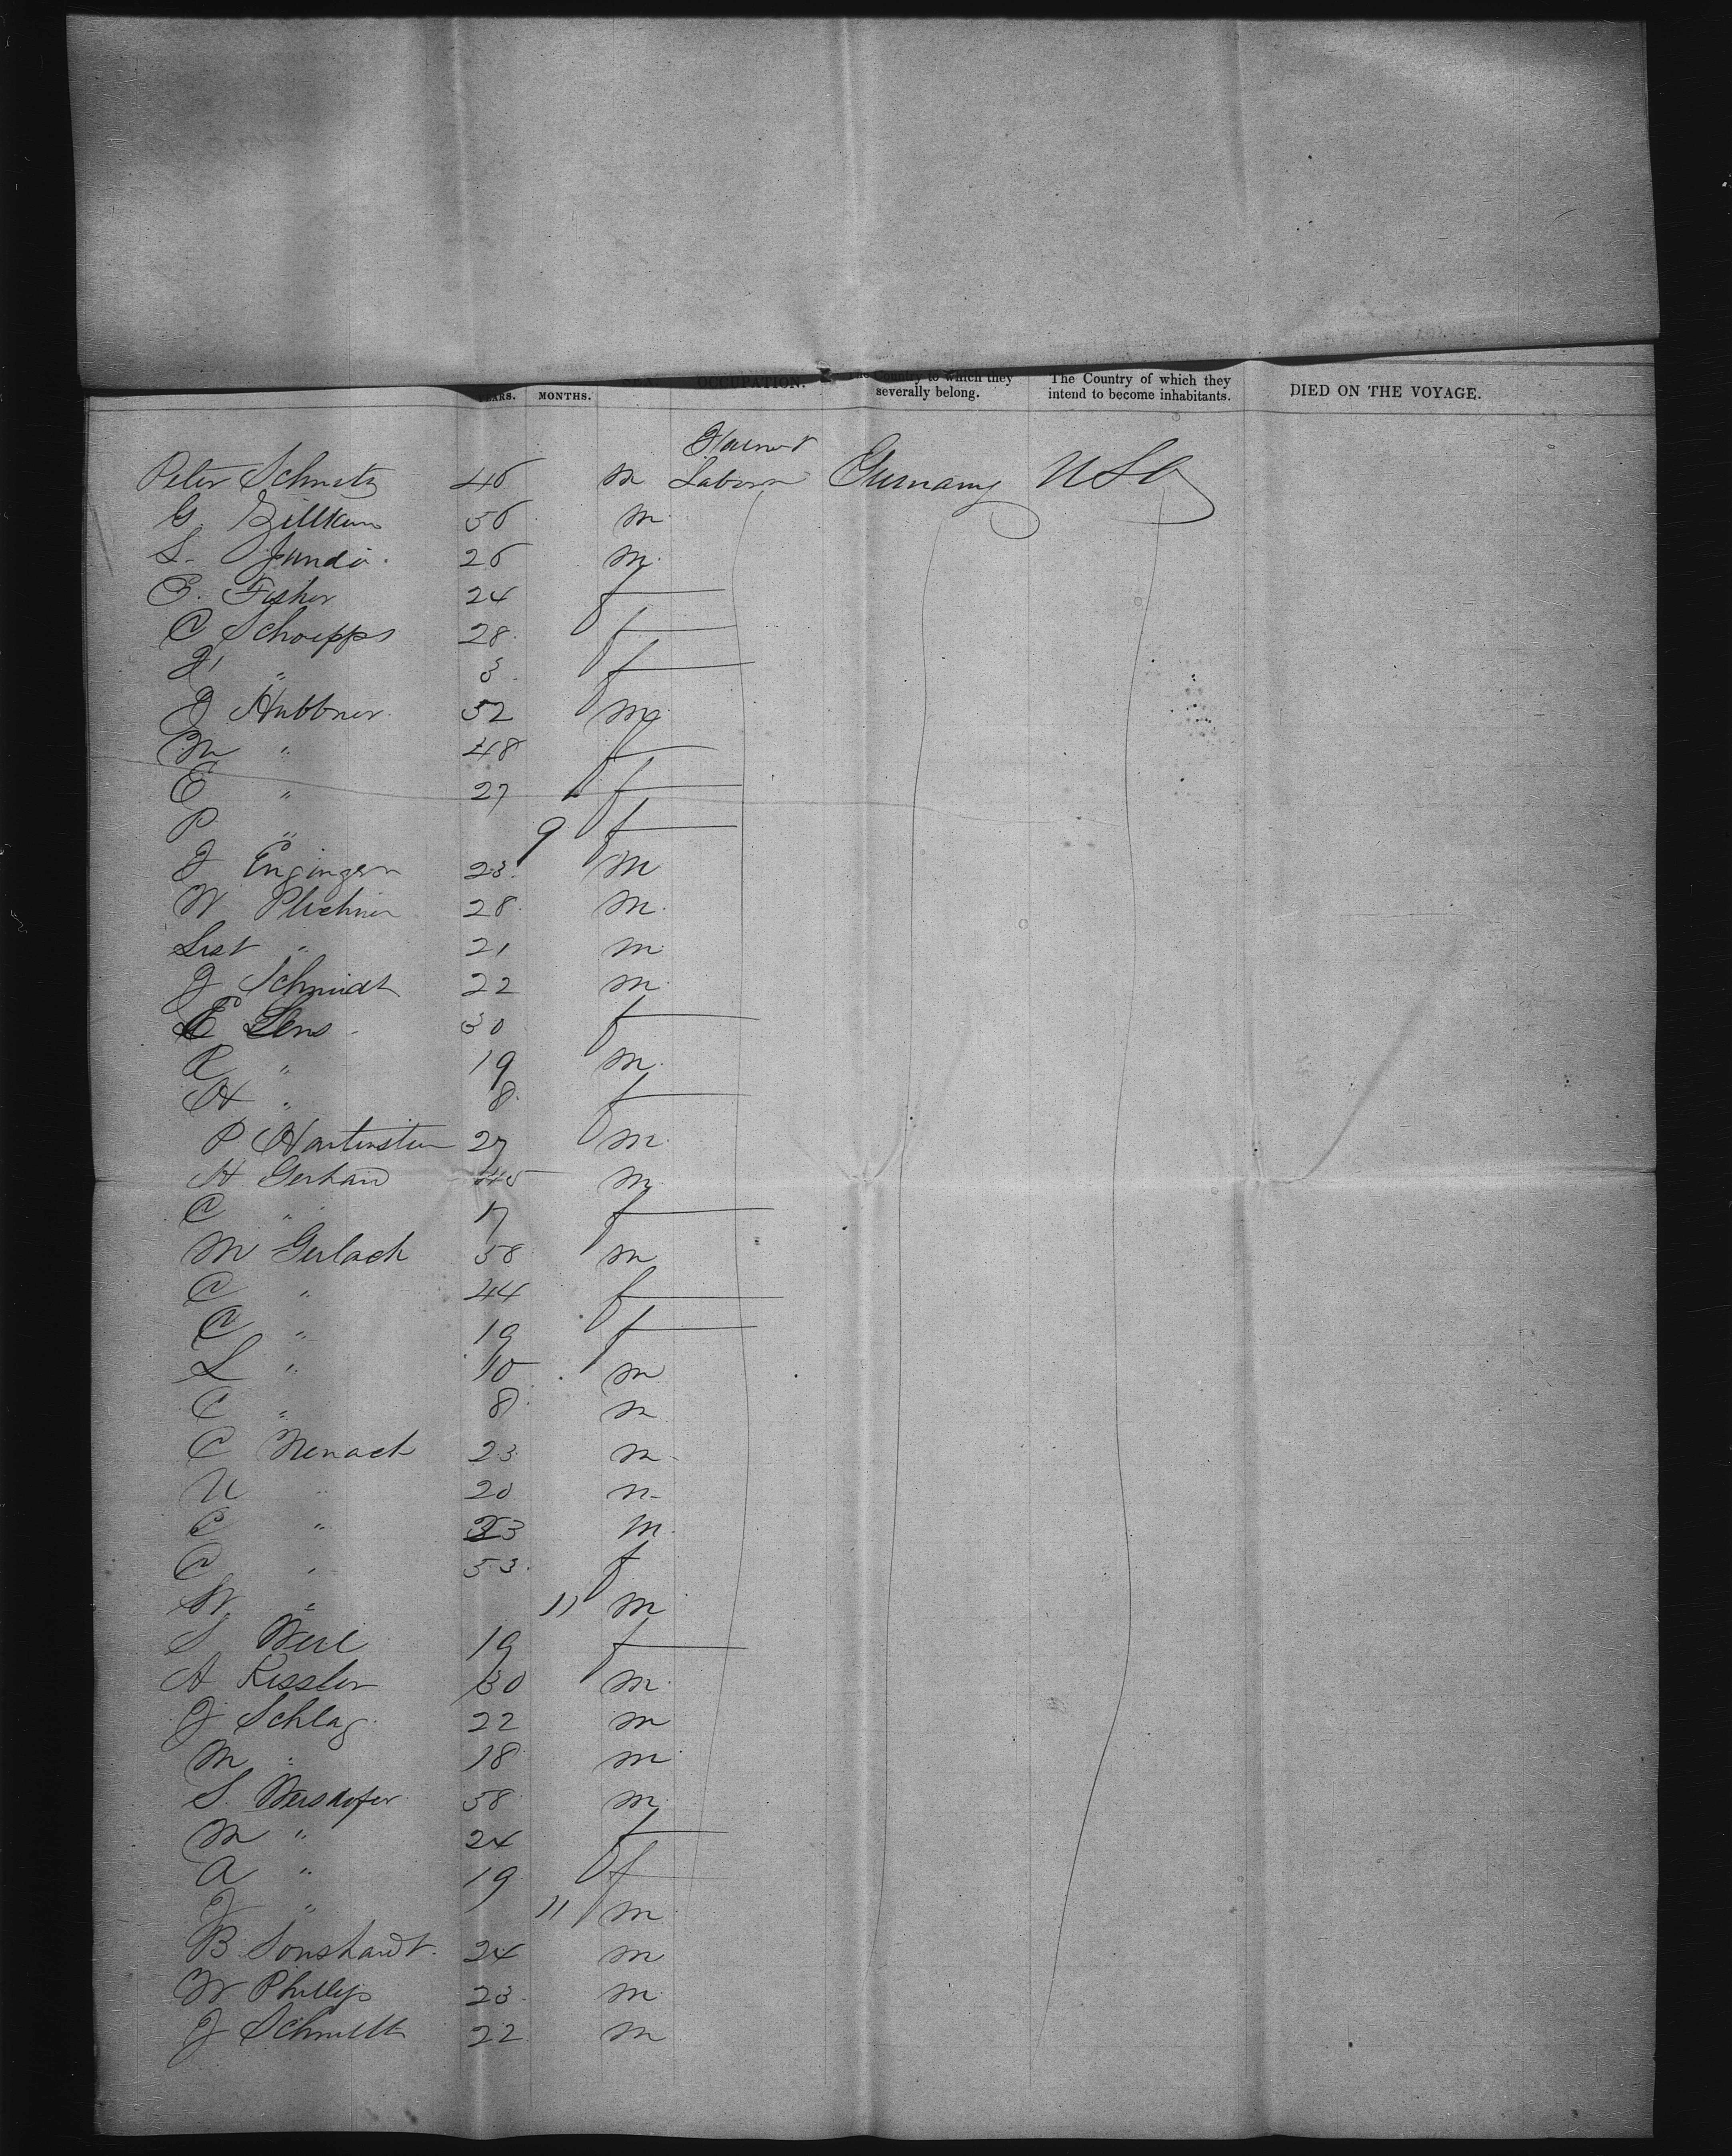 YEARS. MONTHS. SEX. OCCUPATION. The Country to which they severally belong. The Country of which they intend to become inhabitants. DIED ON THE VOYAGE.
Peter Schmitz 46 m Laborer Germany USA
G. 56 m
L. 26 m
Fisher 24 f
C Schoepps 28 f
" 3 f
J Hubbner 52 m
M " 48 f
E " 27 f
P " 9 f
J 23 m
W 28 m
" 21 m
J Schmidt 22 m
E Lens 30 f
" 19 m
H " 8 f
P Hartenstein 27 m
H Gerhard 45 m
C " 17 f
M Gerlach 58 m
C " 44 f
C " 19 f
L " 10 m
C " 8 m
C Menach 23 m
" 20 m
C " 23 m
C " 53 f
W " 11 m
S 19 f
A Kessler 30 m
J Schlag 22 m
M " 18 m
S. 58 m
M " 24 f
A " 19 f
J " 11 m
B 24 m
W Phillips 23 m
J 22 m